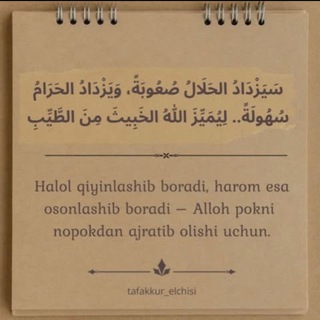 سَيَزْدَادُ الحَلَالُ صُعُوبَةً، وَيَزْدَادُ الحَرَامُ
سُهُولَةً.. لِيُمَيِّزَ اللهُ الخَبِيثَ مِنَ الطَّيِّبِ
Halol qiyinlashib boradi, harom esa
osonlashib boradi – Alloh pokni
nopokdan ajratib olishi uchun.
tafakkur_elchisi